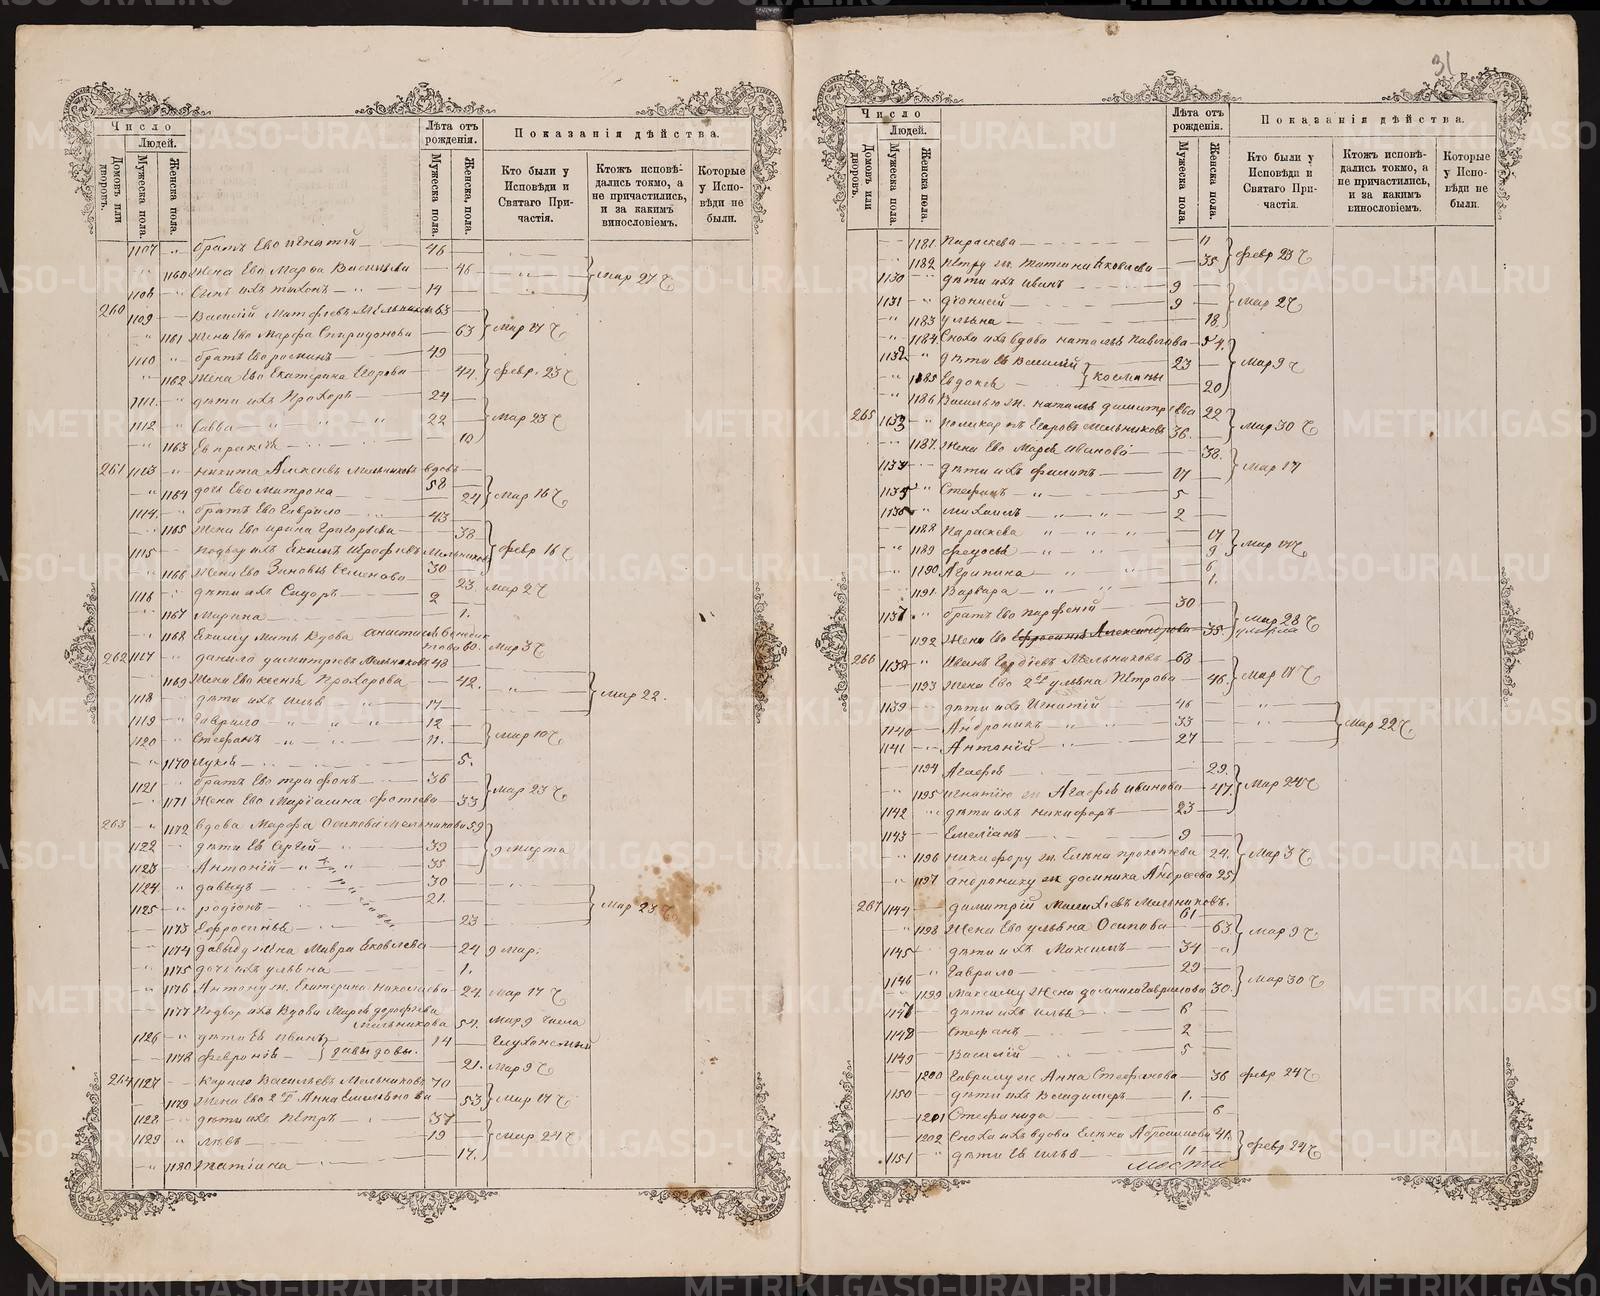 31
Число
Людей.
Домовъ или дворовъ.
Мужеска пола.
Женска пола.
Лѣта отъ рожденія.
Мужеска пола.
Женска, пола.
Показанія дѣйства.
Кто были у Исповѣди и Святаго Причастія.
Ктожъ исповѣдались токмо, а не причастились, и за какимъ винословіемъ.
Которые у Исповѣди не были.
1107 братъ Его Игнатій 46
1160 Жена Его Марѳа Васильева 46 Мар 27 ч
1108 Сынъ ихъ Тихонъ 14
260 1109 Василій Матфеевъ Мельниковъ 63
1161 Жена Его Марфа Спиридонова 63 Мар 17 ч
1110 братъ Его 49
1162 Жена Его Екатерина Егорова 44. февр. 23 ч
1111. дѣти ихъ Прохоръ 24
1112 Савва 22 Мар 23 ч
1163 Евпраксія 10
261 1113 Никита Алексѣевъ Мельниковъ вдовъ 58
1164 дочь Его Матрона 24 Мар 16 ч
1114. братъ Его Гаврило 43
1165 Жена Его Ирина Григорьева 38
1115 Подвор ихъ Екимъ Мельниковъ 30 февр 16 ч
1166 Жена Его Зиновья Семенова 23 Мар 2 ч
1116 дѣти ихъ Сидоръ 2
1167 Марина 1.
1168 Екиму мать вдова Анастасія 60. Мар 3 ч
262 1117 Данило Димитріевъ Мельниковъ 43
1169 Жена Его Ксенія Прохорова 42. Мар 22.
1118 дѣти ихъ Илья 17
1119 Гаврило 12
1120 Стефанъ 11. Мар 10 ч
1170 5.
1121 братъ Его Трифонъ 36
1171 Жена Его Маріамна Фотіева 33 Мар 23 ч
263 1172 вдова Марфа Осипова Мельникова 59
1122 дѣти Ея Сергій 39 9 марта
1123 Антоній 35
1124 Давыдъ 30
1125 Родіонъ 21. Мар 23 ч
1173 Ефросинья 23
1174 Давыду жена Мавра Яковлева 24 9 мар:
1175 дочь ихъ Ульяна 1.
1176 Антону ж. Екатерина Николаева 24. Мар 17 ч
1177 Подвор ихъ Вдова Марья Дорофеева Мельникова 54. Мар 9 числа
1126 дѣти Ея Иванъ 14 Глухонемый
1178 Февронія Давыдовы. 21. Мар 9 ч
264 1127 Кирило Васильевъ Мельниковъ 70
1179 Жена Его 2 я Анна Емельянова 53 Мар 17 ч
1128 дѣти ихъ Петръ 37
1129 Левъ 19 Мар 24 ч
1180 Татіана 17.
Число
Людей.
Домовъ или дворовъ.
Мужеска пола.
Женска пола.
Лѣта отъ рожденія.
Мужеска пола.
Женска пола.
Показанія дѣйства.
Кто были у Исповѣди и Святаго Причастія.
Ктожъ исповѣдались токмо, а не причастились, и за какимъ винословіемъ.
Которые у Исповѣди не были.
1181. Параскева 11
1182 Петру ж. Татіана Яковлева 35. февр 23 ч
1130 дѣти ихъ Иванъ 9
1131 Діонисій 9 Мар 2 ч
1183 Ульяна 18
1184 Сноха ихъ вдова Наталья Павлова 54.
1132 дѣти Ея Василій 23 Мар 9 ч
1185 Евдокія Косьмины 20
1186 Василью ж. Наталья Димитріева 22
265 1133 Поликарпъ Егоровъ Мельниковъ 36. Мар 30 ч
1187. Жена Его Марья Иванова 38.
1134 дѣти ихъ Филипъ 17 Мар 17
1135 Стефанъ 5
1136 Михаилъ 2
1188 Параскева 17
1189 Феодосья 9 Мар 17 ч
1190 Агрипина 6
1191 Варвара 1.
1137 братъ Его Парфеній 30 Мар 28 ч
1192 Жена Его Ефросинья Александрова 35. умерла
266 1138 Иванъ Гордѣевъ Мельниковъ 68
1193 Жена Его 2 я Ульяна Петрова 46. Мар 17 ч
1139 дѣти ихъ Игнатій 46
1140 Андроникъ 33 Мар 22 ч.
1141 Антоній 27
1194 Агафья 29.
1195 Игнатію ж Агафья Иванова 47. Мар 24 ч
1142 дѣти ихъ Никифоръ 23
1143 Емеліанъ 9
1196 Никифору ж. Елена Прокопьева 24. Мар 3 ч
1197 Андронику ж Домника Андреева 25
267 1144 Димитрій Михѣевъ Мельниковъ. 61
1198 Жена Его Ульяна Осипова 63 Мар 9 ч
1145 дѣти ихъ Максимъ 34
1146 Гаврило 29
1199 Максиму Жена Домника Гаврилова 30. Мар 30 ч
1147 дѣти ихъ Илья 6
1148 Стефанъ 2
1149 Василій 5
1200 Гаврилу ж Анна Стефанова 36 февр 24 ч
1150 дѣти ихъ Владимеръ 1.
1201 Стефанида 6
1202 Сноха ихъ вдова Елена Абросимова 41. февр 24 ч
1151 дѣти Ея Илья 11